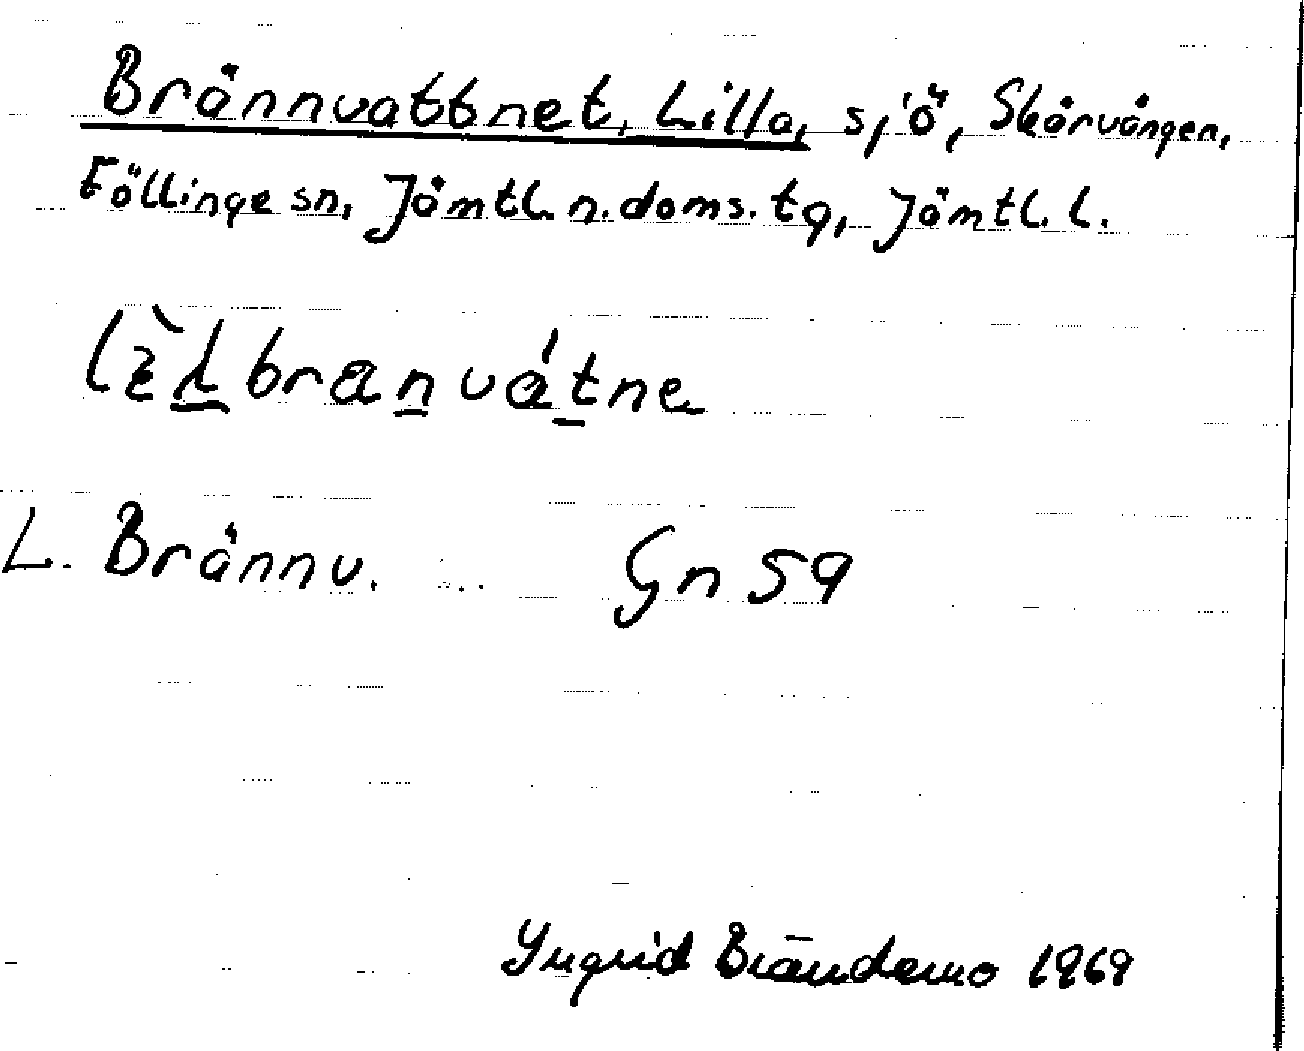 Brännvattnet, Lilla, sjö, Skärvången,
Föllinge sn, Jämtl. n. doms. tg, Jämtl. l.
L. Brännv. Gn 59
Yngrid Brändemo 1969